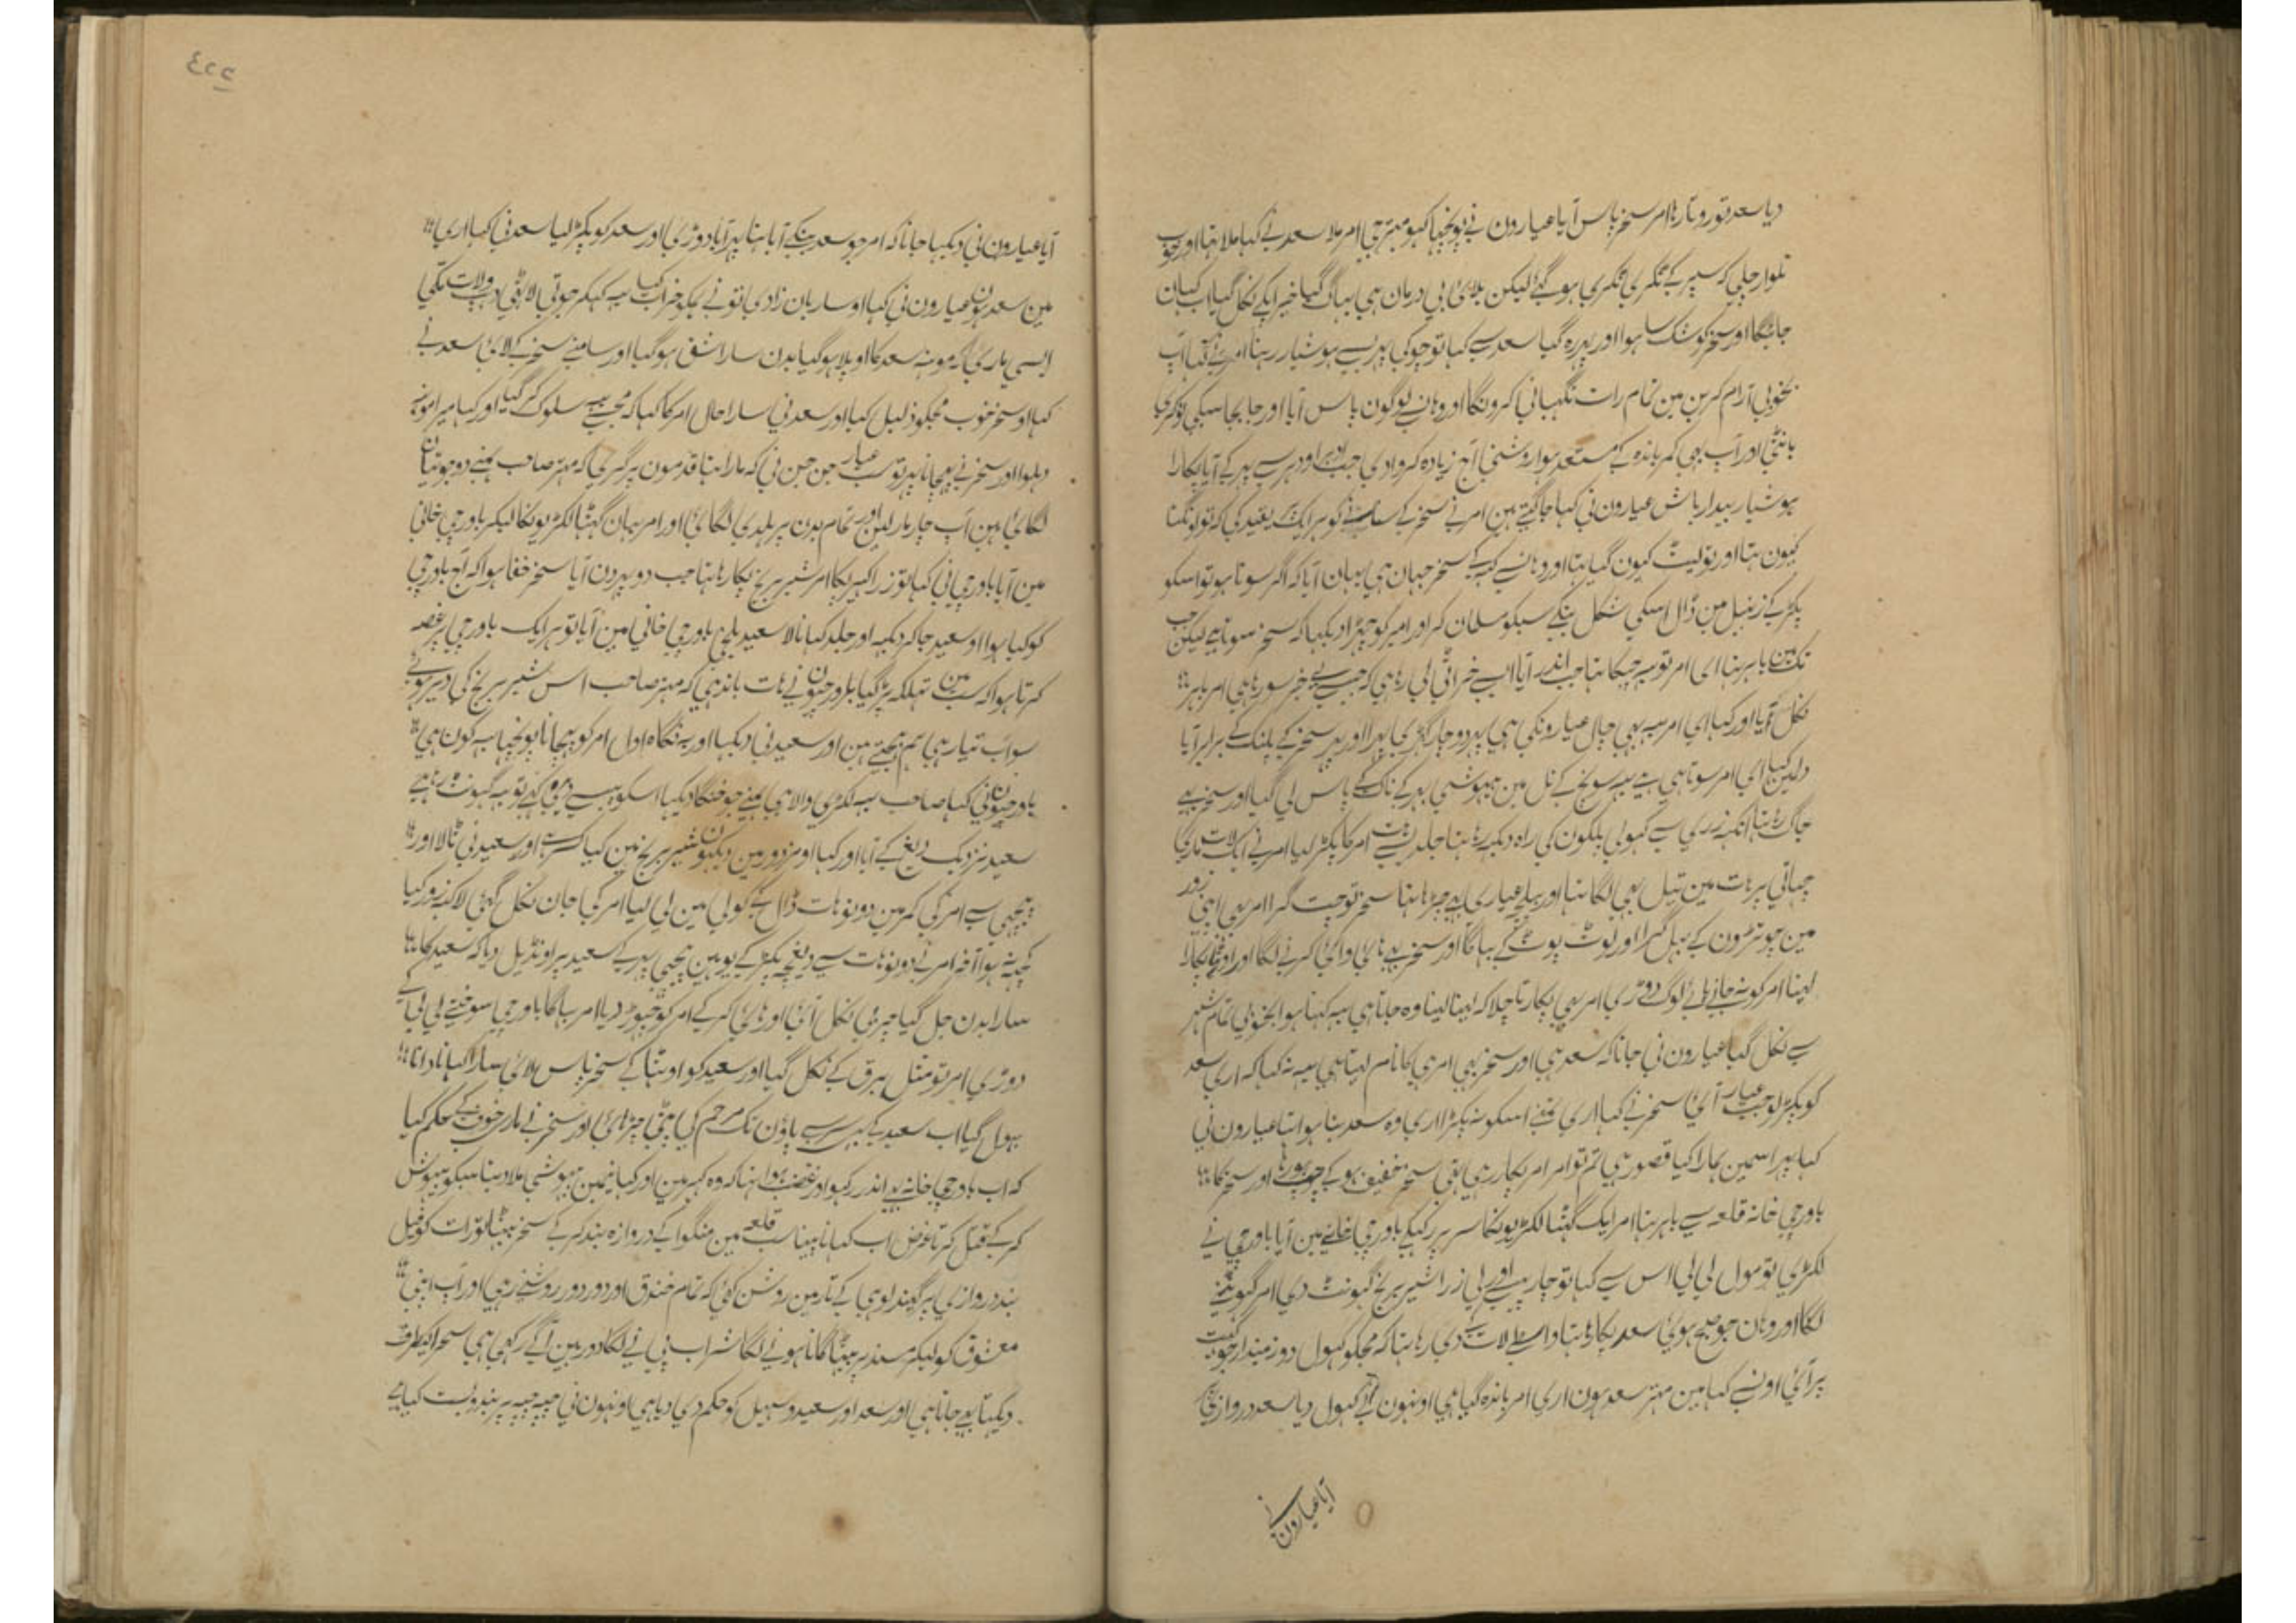 دیا سعد تو روتا رہا امر سخر پاس آیا عیارون نی پوچھا کہو مہتر جی امر ملا سعد نے کہا ملا تہا اور خوب
تلوار چلی کہ سپر کے ٹکری ٹکری ہو گئے لیکن بلائی بی درمان ہی بہاگ گیا خیر ابکے نکل گیا اب کہان
جائیگا اور سخر کو شک سا ہوا اور پہر رہ گیا سعد سے کہا تو چوکی پہر سے ہوشیار رہنا امر نے کہا آپ
بخوبی آرام کرین مین تمام رات نگہبانی کرونگا اور وہان سے لوگون پاس آیا اور جابجا سبکی نوکری
بانٹی اور آپ بھی کمر باندہ کے مستعد ہوا روشنی آج زیادہ کروا دی جب ادہر اودہر سے پہر کے آیا پکارا
ہوشیار بیدار باش عیارون نی کہا جاگتے ہین امر نے سخر کے سامنے کو ہر ایک پر تقید کی کہ تو اونگتا
کیون تہا اور تو لیٹ کیون گیا تہا اور وہان سے کہہ کے سخر جہان ہی وہان آیا کہ اگر سوتا ہو تو اسکو
پکڑ کے زنبیل مین ڈال اسکی شکل بنکے سبکو مسلمان کر اور امیر کو چہڑا دیکہا کہ سخر سوتا ہے لیکن جب
تک مین باہر تہا ای امر تو یہ چپکا تہا جب اندر آیا اب خراٹی لی رہا ہی کہ جیسے بے خبر سو رہا ہی امر باہر
نکل آیا اور کہا ای امر یہ بھی چال عیارونکی ہی پہر دو چار گہڑی پہرا اور پہر سخر کے پلنگ کے برابر آیا
دلمین کہا ای امر سوتا ہی ہے یہ سونچ کے نل مین بیہوشی بہر کے ناک کے پاس لی گیا اور سخر یہ
جاگ رہا تہا آنکہہ ذری سے کہولی پلکون کی راہ دیکہہ رہا تہا جلدی سے ہات امر کا پکڑ لیا امر نے ایک لات ماری
چہاتی پر ہات مین تیل بھی لگا تہا اور پہلے عیاری پہ چڑہا تہا سخر تو چت گرا امر بھی اپنی زور
مین چوتڑون کے بہل گرا اور لوٹ پوٹ کے بہاگا اور سخر نے ہائی وائی کرنے لگا اور اوٹہا پکارا
لینا امر کو نہ جانے پائے لوگ دوڑی امر بھی پکارتا چلا کہ لینا لینا وہ جاتا ہی یہ کہتا ہوا بخوبی تمام شہر
سے نکل گیا عیارون نی جانا کہ سعد ہی اور سخر بھی امر ہی کا نام لیتا ہی یہ نہ کہا کہ اری سعد
کو پکڑ لو جب عیار آئی سخر نے کہا اری تمنے اسکو نہ پکڑا اری وہ سعد بنا ہوا تہا عیارون نی
کہا پہر اسمین ہمارا کیا قصور ہی تم تو امر امر پکار رہی تہی سخر خفیف ہو کے چپ ہو رہا اور سخر کا
باورچی خانہ قلعہ سے باہر تہا امر ایک گٹہا لکڑیونکا سر پر رکہکے باورچی خانے مین آیا باورچی نے
لکڑی تو مول لی لی اس سے کہا تو چار پیسے اور لی ذرا شیر برنج گہونٹ دی امر گہونٹنے
لگا اور وہان جو صبح ہوئی سعد پکار رہا تہا دی رہا تہا کہ مجکو کہول دو زمیندار جو کہیت
پر آئی اونسے کہا مین مہتر سعد ہون اری امر باندہ گیا ہی اونہون نے کہول دیا سعد دروازی پر
آیا عیارون نے
٤٢٢
آیا عیارون نی دیکہا جانا کہ امر جو سعد بنکے آیا تہا پہر آیا دوڑی اور سعد کو پکڑ لیا سعد نی کہا اری
مین سعد ہون عیارون نی کہا او ساربان زادی تو نے ہمکو خراب کیا یہ کہکر جوتی لاٹہی و لات مکی
ایسی ماری کہ مونہہ سعد کا اوپلا ہو گیا بدن سارا شق ہو گیا اور سامنے سخر کے لائی سعد نے
کہا او سخر خوب مجکو ذلیل کیا اور سعد نی سارا حال امر کا کہا کہ مجسے یہ سلوک کر گیا اور کہا میرا مونہہ
دہلوا اور سخر نے پہچانا پہر تو سب عیار جن جن نی کہ مارا تہا قدمون پر گری کہ مہتر صاحب ہمنے دو جوتیان
لگائی ہین آپ چار مار لین اور تمام بدن پر ہلدی لگائی اور امر یہان گٹہا لکڑیونکا لیکر باورچی خانی
مین آیا باورچی نی کہا تو ذرا کہیر پکا امر شیر برنج پکا رہا تہا جب دوپہر دن آیا سخر خفا ہوا کہ آج باورچی
کو کیا ہوا او سعید جا کر دیکہہ اور جلد کہانا لا سعید بلخی باورچی خانی مین آیا تو ہر ایک باورچی پر غصہ
کرتا ہوا کہ سب مین تہلکہ پڑ گیا باورچیون نے ہات باندہی کہ مہتر صاحب اس شیر برنج کی دیر ہوئی ہے
سو اب تیار ہی ہم بہیجتے ہین اور سعید نی دیکہا اور بہ نگاہ اول امر کو پہچانا پوچہا یہ کون ہی
باورچیون نی کہا صاحب یہ لکڑی والا ہی ہمنے جو خنگا دیکہا اسکو پیسے دیئے تو یہ گہونٹ رہا ہے
سعید نزدیک دیغ کے آیا اور کہا او مزدور مین دیکہون شیر برنج مین کیا کسر ہے اور سعید نی ٹالا اور
پیچہی سے امر کی کمر مین دونو ہات ڈال کے کولی مین لی لیا امر کی جان نکل گئی لاکہہ زور کیا
کچہہ نہ ہوا آخر امر نے دونو ہات سے دیغچہ پکڑ کے یوہین پیچہی پہر کے سعید پر اونڈیل دیا کہ سعید کا
سارا بدن جل گیا چربی نکل آئی اور ہائی کر کے امر کو چہوڑ دیا امر بہاگا باورچی سوختے لی لی کے
دوڑی امر تو مثل برق کے نکل گیا اور سعید کو اوٹہا کے سخر پاس لائی سارا کہانا دانا
بہول گیا اب سعید کے سر سے پاؤن تک مرہم کی پٹی چڑہائی اور سخر نے ماری خوف کے حکم کیا
کہ اب باورچی خانہ اندر رکہو اور غضب ہوا تہا کہ وہ کہیر مین اور کہانیمین بیہوشی ملا دیتا سبکو بیہوش
کر کے قتل کرتا غرض اب کہانا پینا سب قلعہ مین منگوا کے دروازہ بند کر کے سخر بیٹہا تو رات کو فیل
بند دروازی پر گیند لوہی کے تار مین روشن کئی کہ تمام خندق اور دور دور روشنی رہی اور آپ اپنی
معشوق کو لیکر مسند پر بیٹہا گانا ہونے لگا شراب پی نے لگا دوربین آگے رکہی ہی سخر ایکطرف
دیکہتا بھی جاتا ہی اور سعد اور سعید و سہیل کو حکم دی دیا ہی اونہون نی چپہ چپہ پر بندوبست کیا ہے